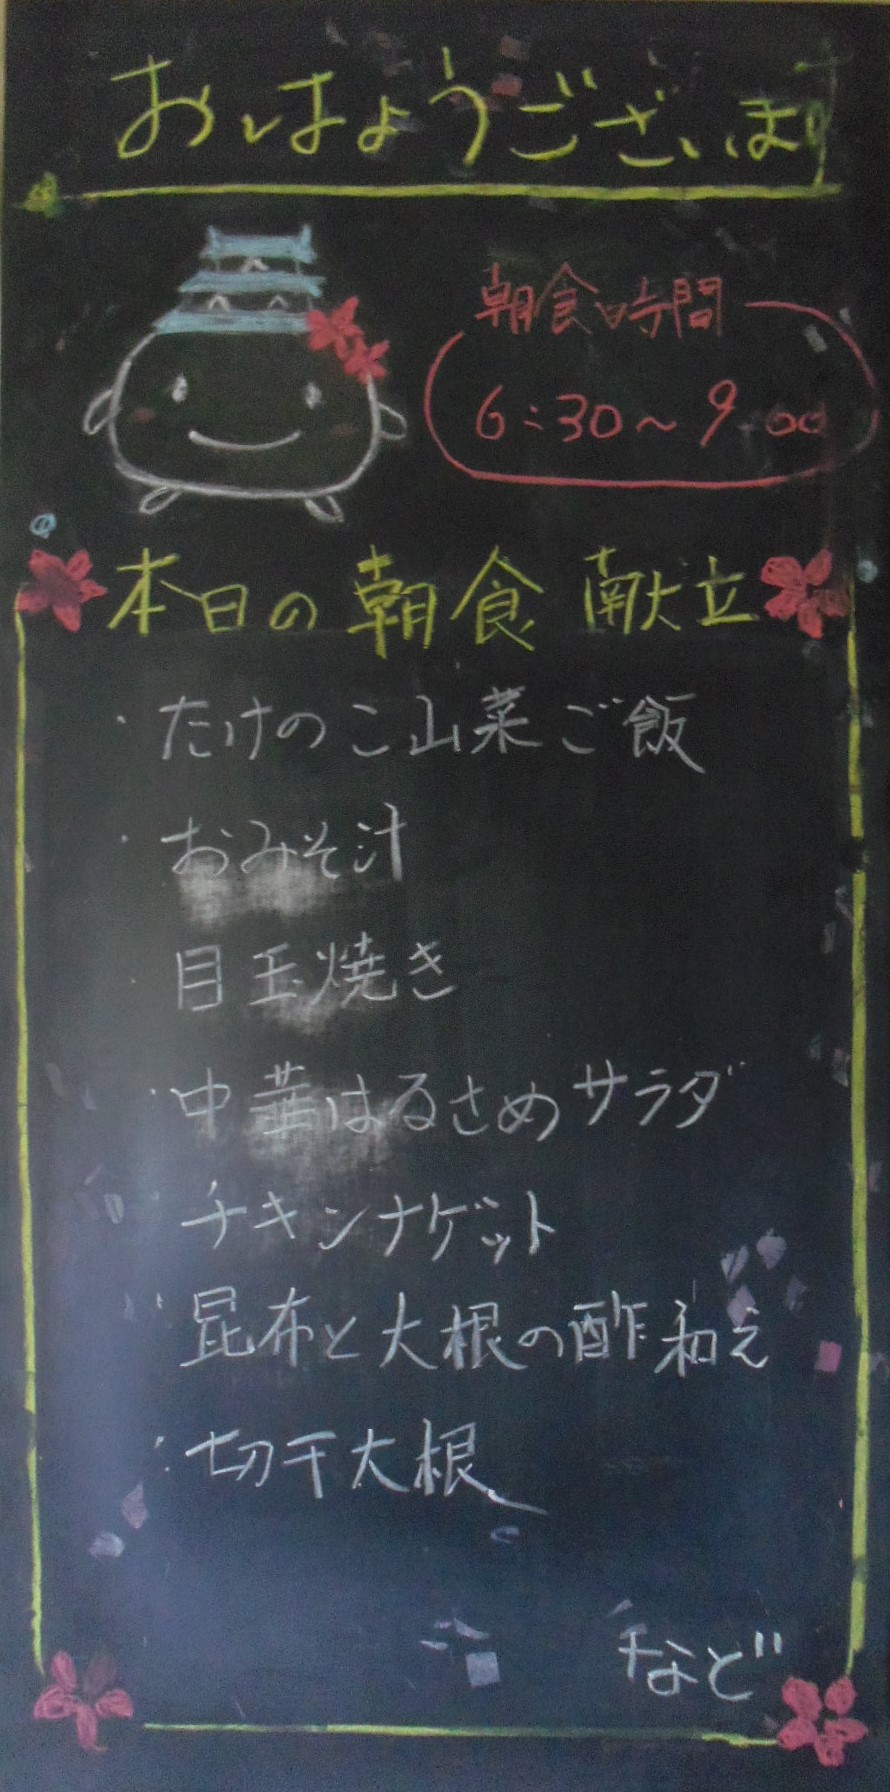 おはようございます
朝食時間
6:30～9:00
本日の朝食献立
・たけのこ山菜ご飯
・おみそ汁
・目玉焼き
・中華はるさめサラダ
チキンナゲット
・昆布と大根の酢和え
・切干大根
など